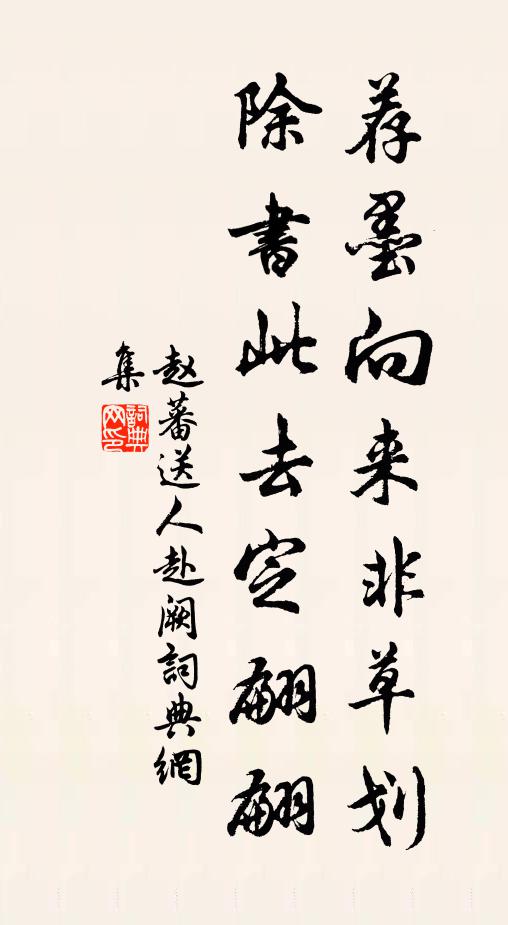 荐墨向来非草划
除书此去定翩翩
赵蕃送人赴阙词典网
集
词典网印